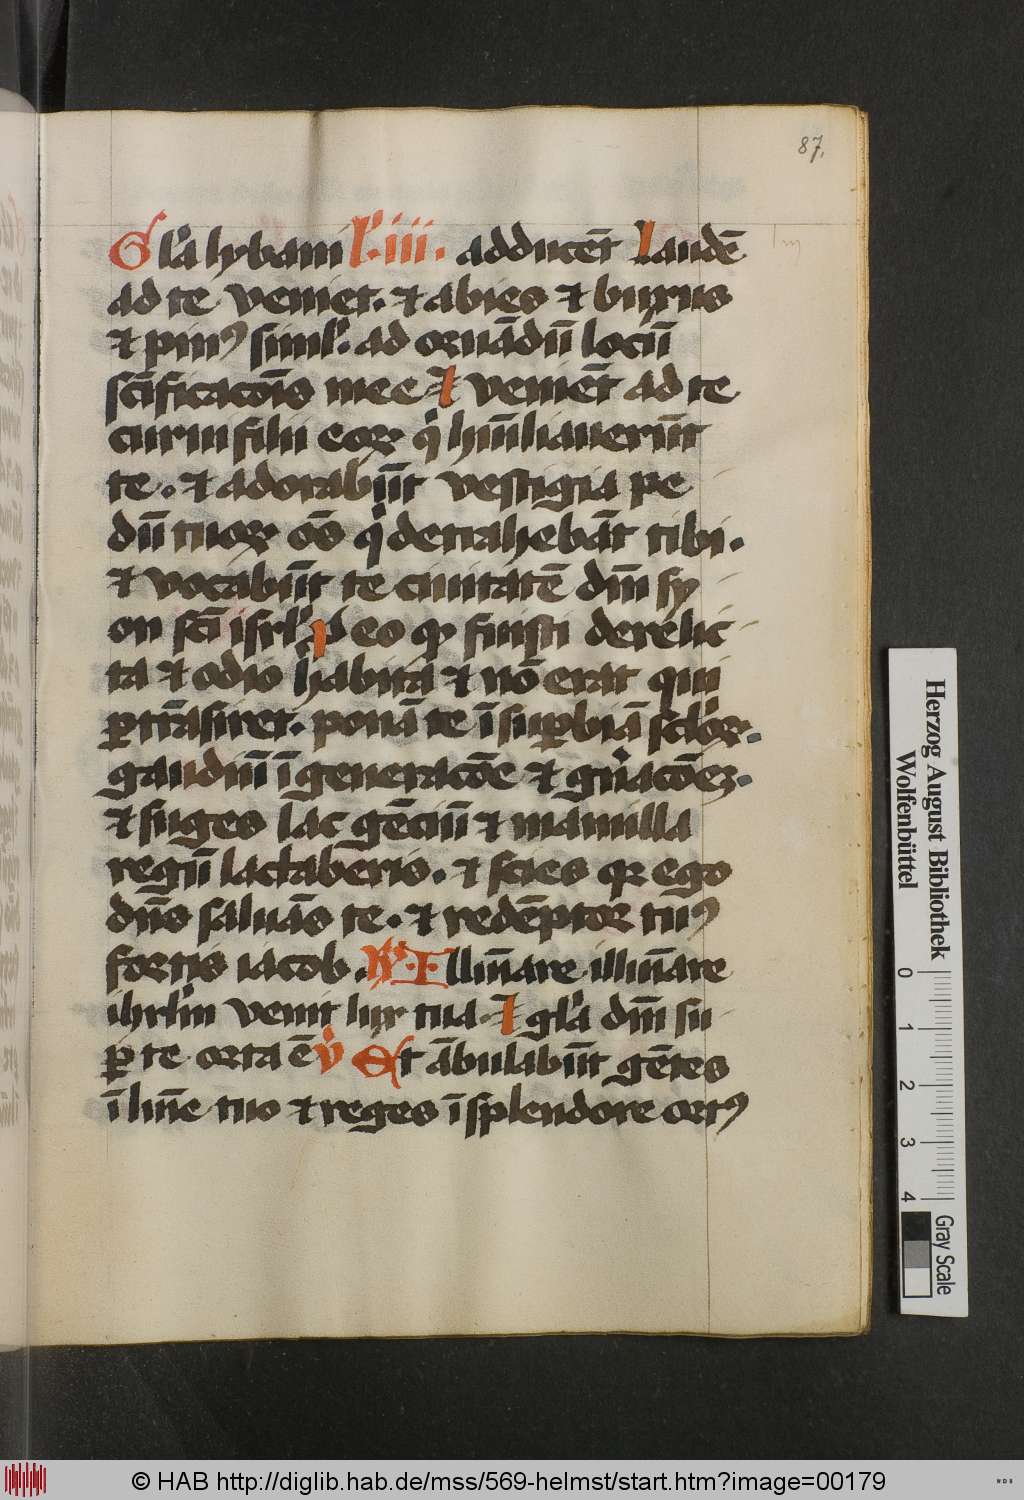 87,
Gl'a lybani l'. iii. adducēt laudē
ad te veniet. et abies et buxus
et pinꝰ simil'. ad ornādū locū
scīficacōis mee. Et veniēt ad te
curui filii eoꝝ q' hūiliauerūt
te. et adorabūt vestigia pe
dū tuoꝝ oēs q' detrahebāt tibi.
et vocabūt te ciuitatē dn̄i sy
on sc̄i isrl'. Pro eo qꝫ fuisti derelic
ta et odio habita et nō erat qui
ꝑtrāsiret. ponā te ī suꝑbiā scl'oꝝ.
gaudiū ī generacōe et gn̄acōeꝫ.
et suges lac gēciū et mamilla
regū lactaberis. et scies qꝛ ego
dn̄s saluās te. et redēptor tuꝰ
fortis iacob. Rs. Illūīare illūīare
ihrl'm venit lux tua. Et gl'a dn̄i su
ꝑ te orta ē V' Et ābulabūt gētes
ī lūīe tuo et reges ī splendore ortꝰ
Herzog August Bibliothek
Wolfenbüttel
0 1 2 3 4
Gray Scale
© HAB http://diglib.hab.de/mss/569-helmst/start.htm?image=00179